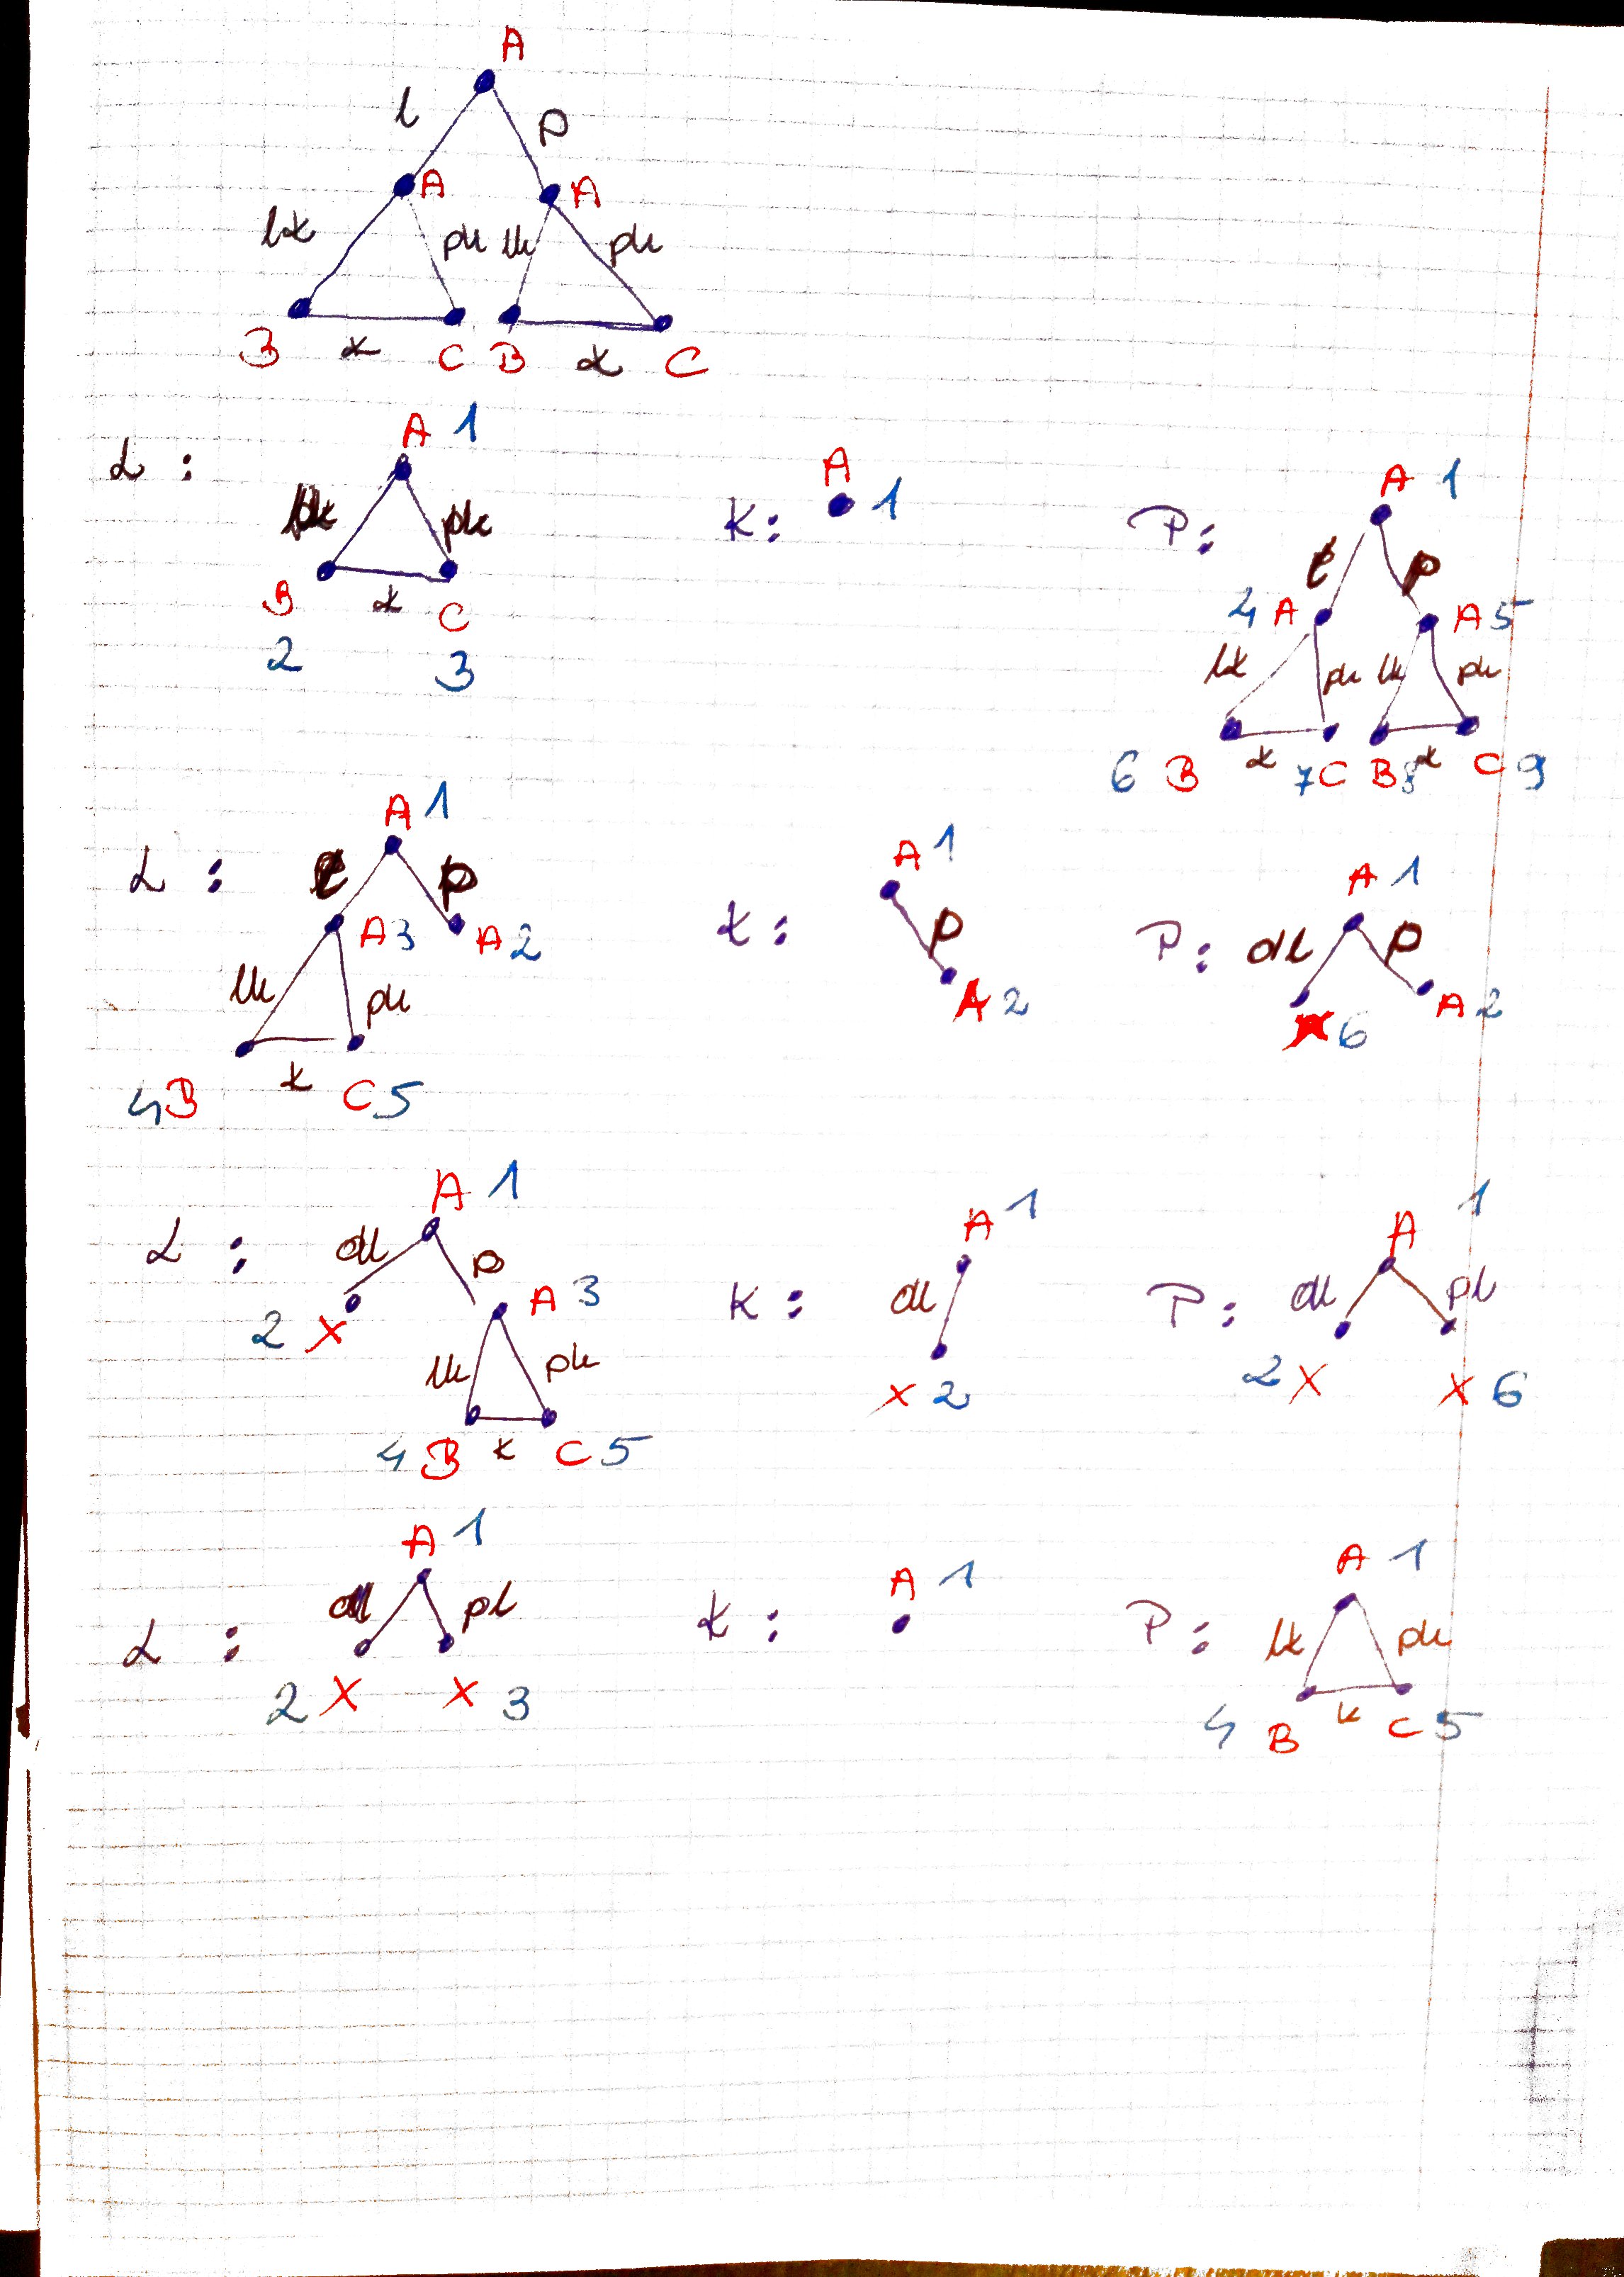 A
l p
A A
lk pk lk pk
B k C B k C
A 1
L :
pk
B k C
2 3
A
K: 1
A 1
P:
p
4 A A 5
lk pk lk pk
6 B k 7 C B 8 k C 9
A 1
L : p
A 3 A 2
lk pk
4 B k C 5
A 1
k : p
A 2
A 1
P: dl p
6 A 2
A 1
L : dl p
2 X A 3
lk pk
4 B k C 5
A 1
K : dl
X 2
A 1
P: dl pl
2 X X 6
A 1
L : dl pl
2 X X 3
A 1
k :
A 1
P: lk pk
4 B k C 5